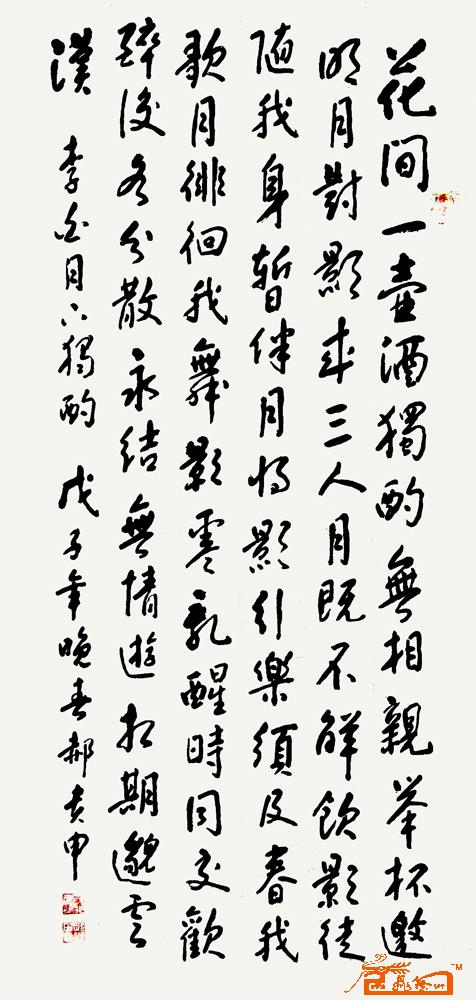 花间一壺酒獨酌無相親举杯邀
明月對影成三人月既不解飲影徒
随我身暫伴月将影行樂須及春我
歌月徘徊我舞影零乱醒時同交歡
醉後各分散永结無情遊相期邈雲
漢 李白月下獨酌 戊子年晚春郝申